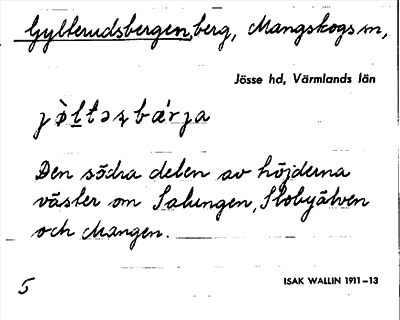 Gylterudsbergen, berg, Mangskogs sn,
Jösse hd, Värmlands län
Den södra delen av höjderna
väster om Salungen, Slobyälven
och Mangen.
5
ISAK WALLIN 1911–13